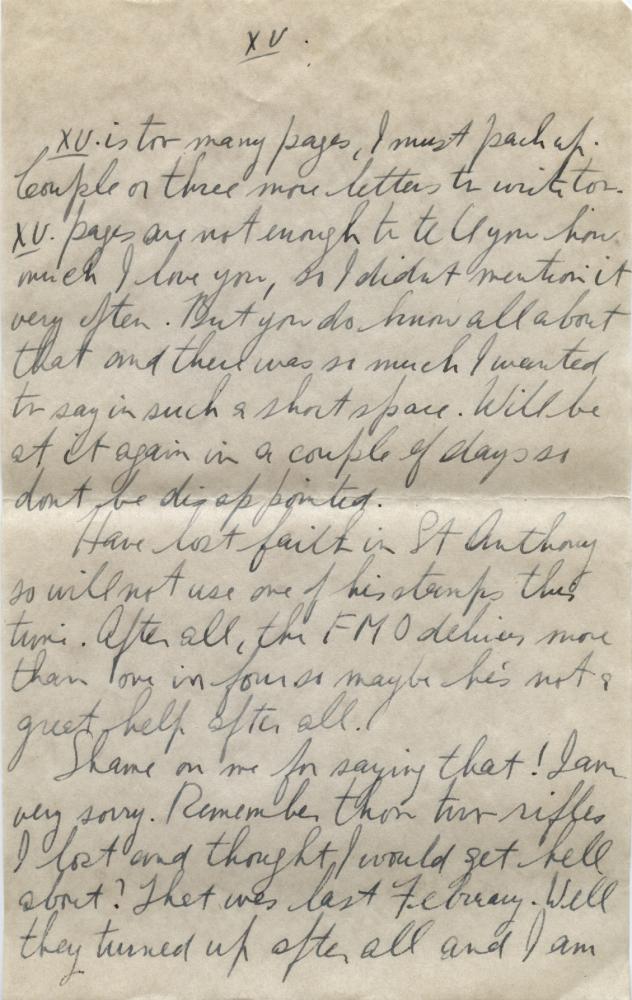 XV.
XV. is too many pages, I must pack up.
Couple or three more letters to write too.
XV. pages are not enough to tell you how
much I love you, so I didnt mention it
very often. But you do know all about
that and there was so much I wanted
to say in such a short space. Will be
at it again in a couple of days so
dont be disappointed.
Have lost faith in St Anthony
so will not use one of his stamps this
time. After all, the FMO delivers more
than one in four so maybe he's not a
great help after all.
Shame on me for saying that! I am
very sorry. Remember those two rifles
I lost and thought I would get hell
about? That was last February. Well
they turned up after all and I am